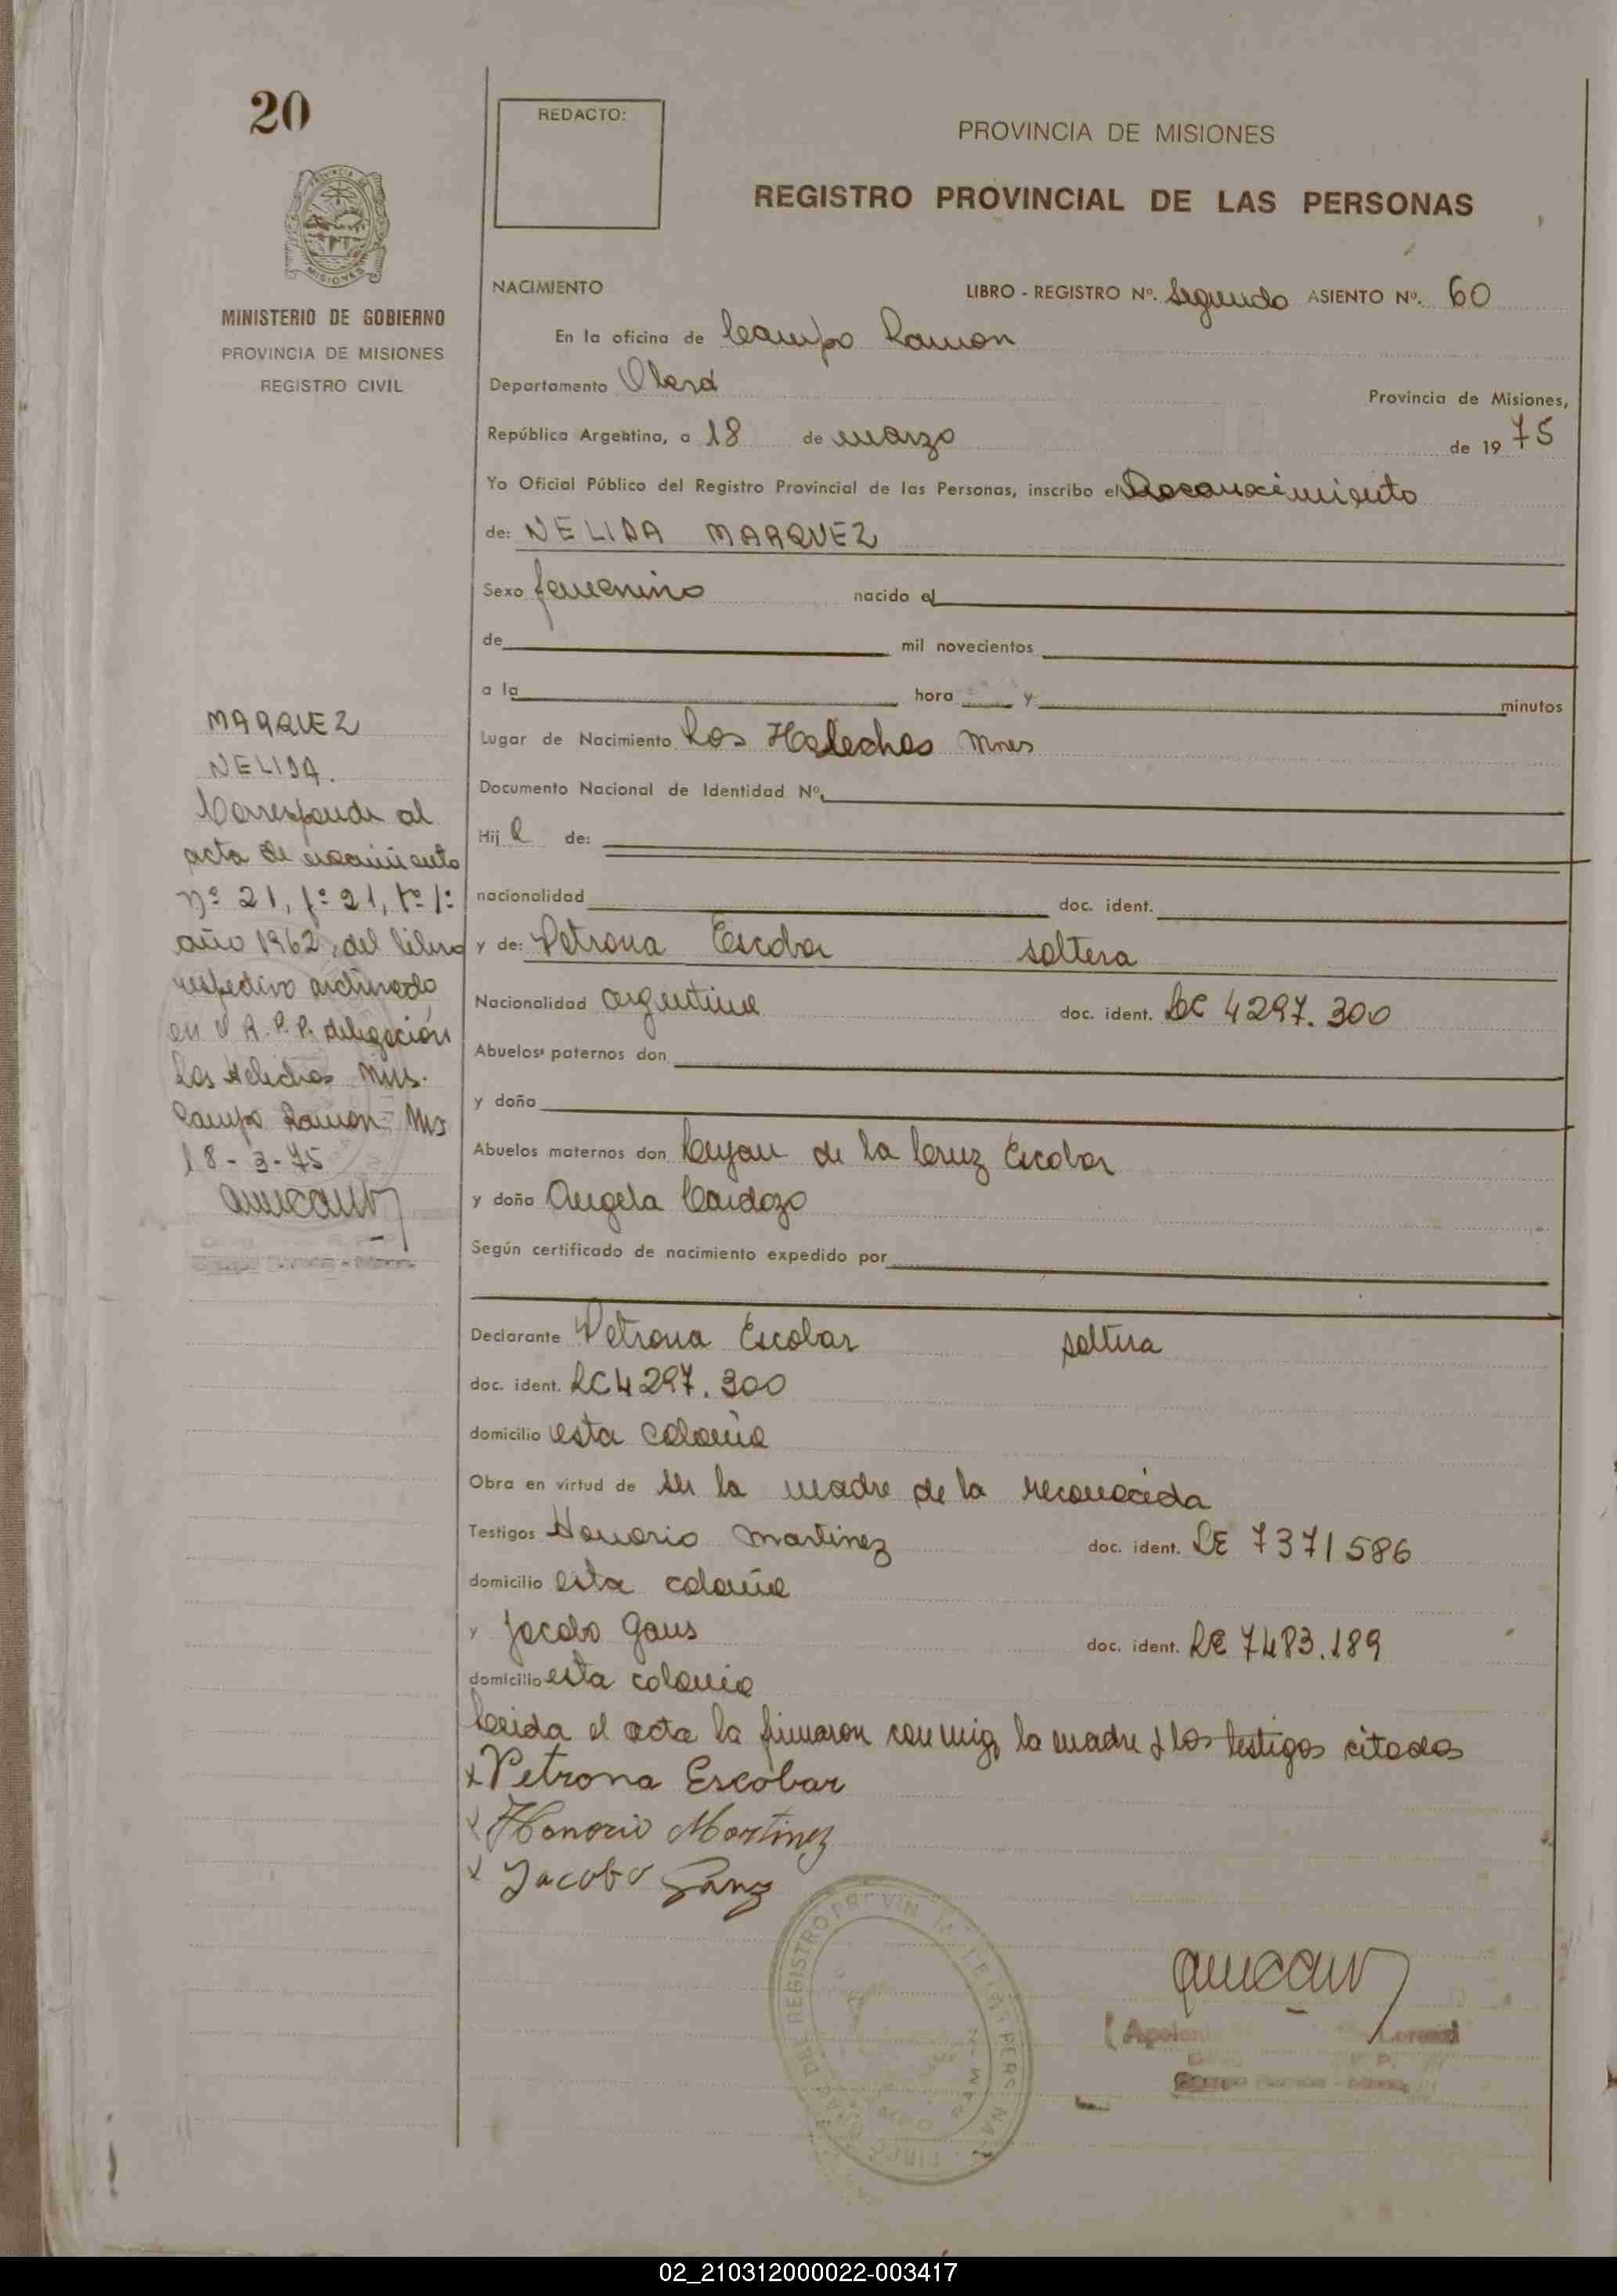 20
REDACTO:
PROVINCIA DE MISIONES
REGISTRO PROVINCIAL DE LAS PERSONAS
PROVINCIA DE
MISIONES
MINISTERIO DE GOBIERNO
PROVINCIA DE MISIONES
REGISTRO CIVIL
NACIMIENTO
LIBRO - REGISTRO Nº. Segundo ASIENTO Nº. 60
En la oficina de Campo Ramon
Departamento Oberá Provincia de Misiones,
República Argentina, a 18 de marzo de 1975
Yo Oficial Público del Registro Provincial de las Personas, inscribo el Reconocimiento
de: NELIDA MARQUEZ
Sexo femenino nacido el
de mil novecientos
a la hora y minutos
Lugar de Nacimiento Los Helechos Mnes
Documento Nacional de Identidad Nº.
Hija de:
nacionalidad doc. ident.
y de: Petrona Escobar soltera
Nacionalidad argentina doc. ident. LC 4297.300
Abuelos paternos don
y doña
Abuelos maternos don de la Cruz Escobar
y doña Angela Cardozo
Según certificado de nacimiento expedido por
Declarante Petrona Escobar soltera
doc. ident. LC 4297.300
domicilio esta colonia
Obra en virtud de ser la madre de la reconocida
Testigos Honorio Martinez doc. ident. LE 7371586
domicilio esta colonia
y Jacobo Gans doc. ident. LE 7483.189
domicilio esta colonia
Leida el acta la firmaron conmigo la madre y los testigos citados
x Petrona Escobar
x Honorio Martinez
x Jacobo Ganz
MARQUEZ
NELIDA.
Corresponde al
acta de nacimiento
nº 21, fº 21, tº 1º
año 1962, del libro
respectivo archivado
en R.P.P. delegación
Los Helechos Mns.
Campo Ramon Mns
18-3-75
02_210312000022-003417